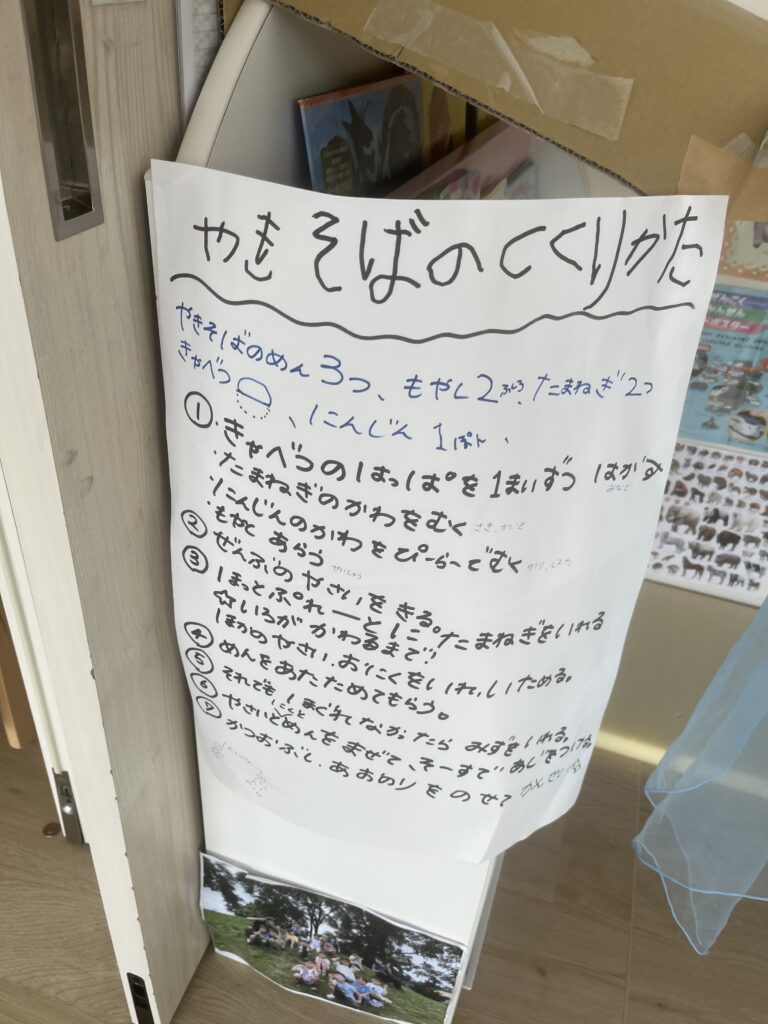 やきそばのつくりかた
やきそばのめん3つ、もやし2ふくろ、たまねぎ2つ
きゃべつ 、にんじん 1ぽん、
① ・きゃべつのはっぱを1まいずつ はがす
みなと
・たまねぎのかわをむく
・にんじんのかわをぴーらーでむく
・もやし あらう
② ぜんぶのやさいをきる。
③ ほっとぷれーとに。たまねぎをいれる
☆いろが かわるまで!
④ ほかのやさい.おにくをいれ.いためる。
⑤ めんをあたためてもらう。
⑥ それでも ほぐれてなかったら みずをいれる。
⑦ やさいとめんをまぜて、そーすで あじをつける。
かつおぶし.あおのりをのせて かんせい